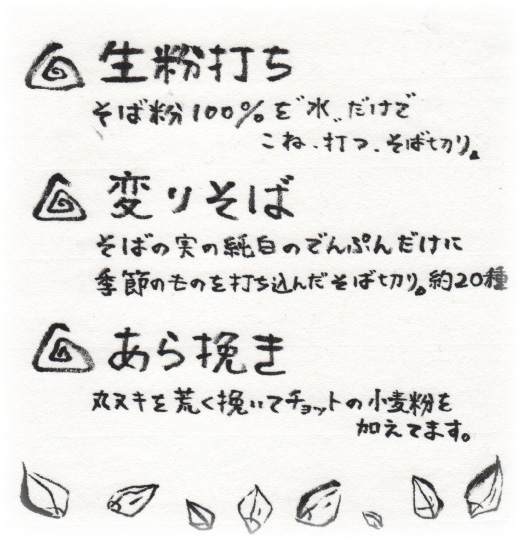 生粉打ち
そば粉100%を"水"だけで
こね、打つ、そば切り。
変りそば
そばの実の純白のでんぷんだけに
季節のものを打ち込んだそば切り。約20種
あら挽き
丸ヌキを荒く挽いてチョットの小麦粉を
加えてます。